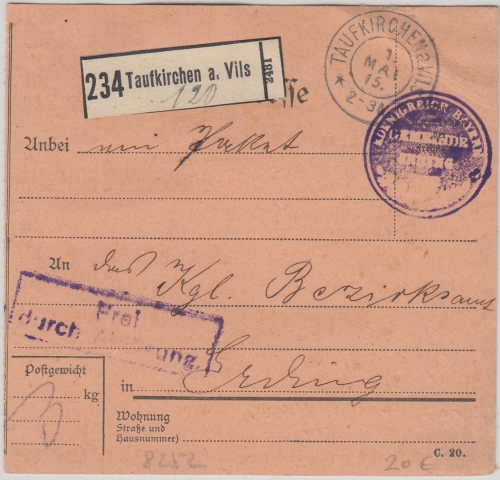 234 Taufkirchen a. Vils 2481
120
TAUFKIRCHEN
1
MAI
15.
2-3
KÖNIGREICH BAYERN
Anbei ein Paket
An das Kgl. Bezirksamt
Frei
durch
Postgewicht
kg
in Erding
Wohnung
Straße und
Hausnummer)
C. 20.
8252
20 €